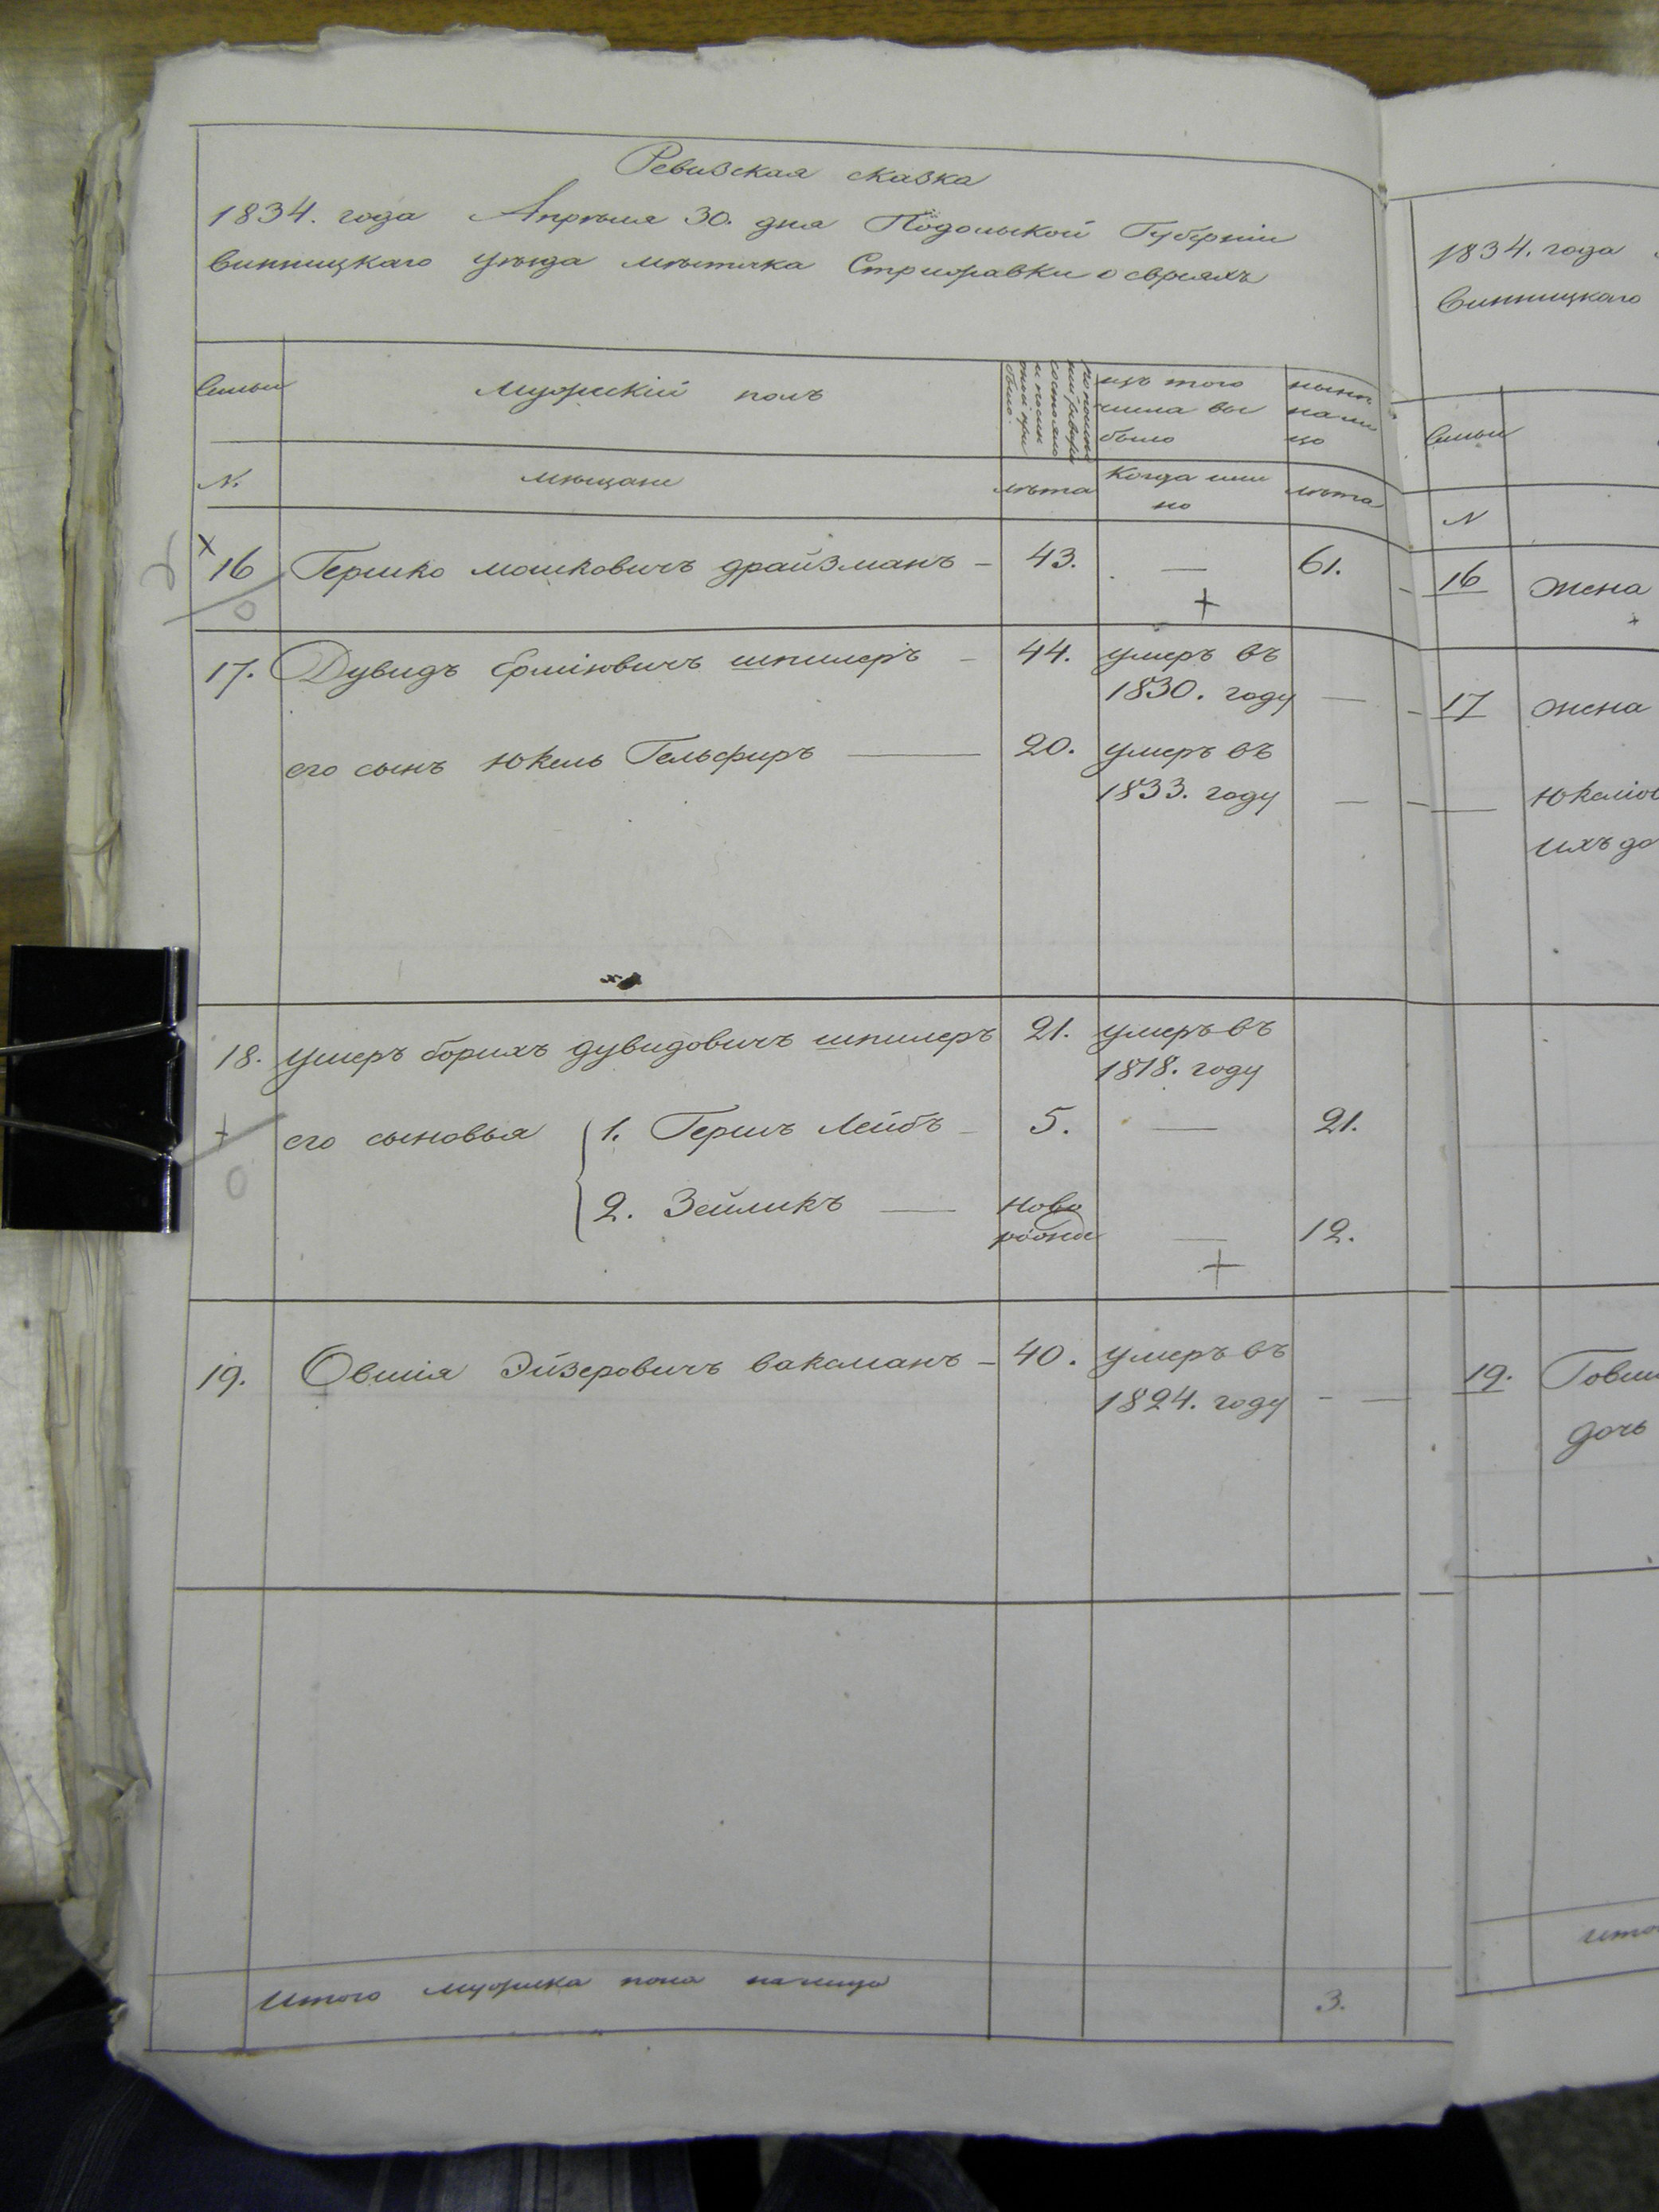 Ревизская сказка
1834. года Апреля 30. дня Подольской Губерніи
Винницкаго уезда местечка Стрижавки о евреяхъ
Семьи
Мужескій полъ
по последней ревизіи состояло и после оной при было.
изъ того числа вы было
ныне на ли цо
N.
мещане
лета
Когда имя но
лета
16 Гершко мошковичъ драйзманъ — 43. — 61.
17. Дувидъ Ерміовичъ шпилеръ — 44. умеръ въ
1830. году —
его сынъ Юкель Гельфиръ — 20. умеръ въ
1833. году —
18. умеръ борихъ дувидовичъ шпилеръ 21. умеръ въ
1818. году
его сыновья 1. Гершъ Лейбъ — 5. — 21.
2. Зейликъ — ново рожде — 12.
19. Овшія Эйзеровичъ ваксманъ — 40. умеръ въ
1824. году —
Итого мужеска пола налицо 3.
1834. года
Винницкаго
Семьи
N
16 жена
17 жена
Юкелiо
ихъ до
19. Говш
дочь
итого